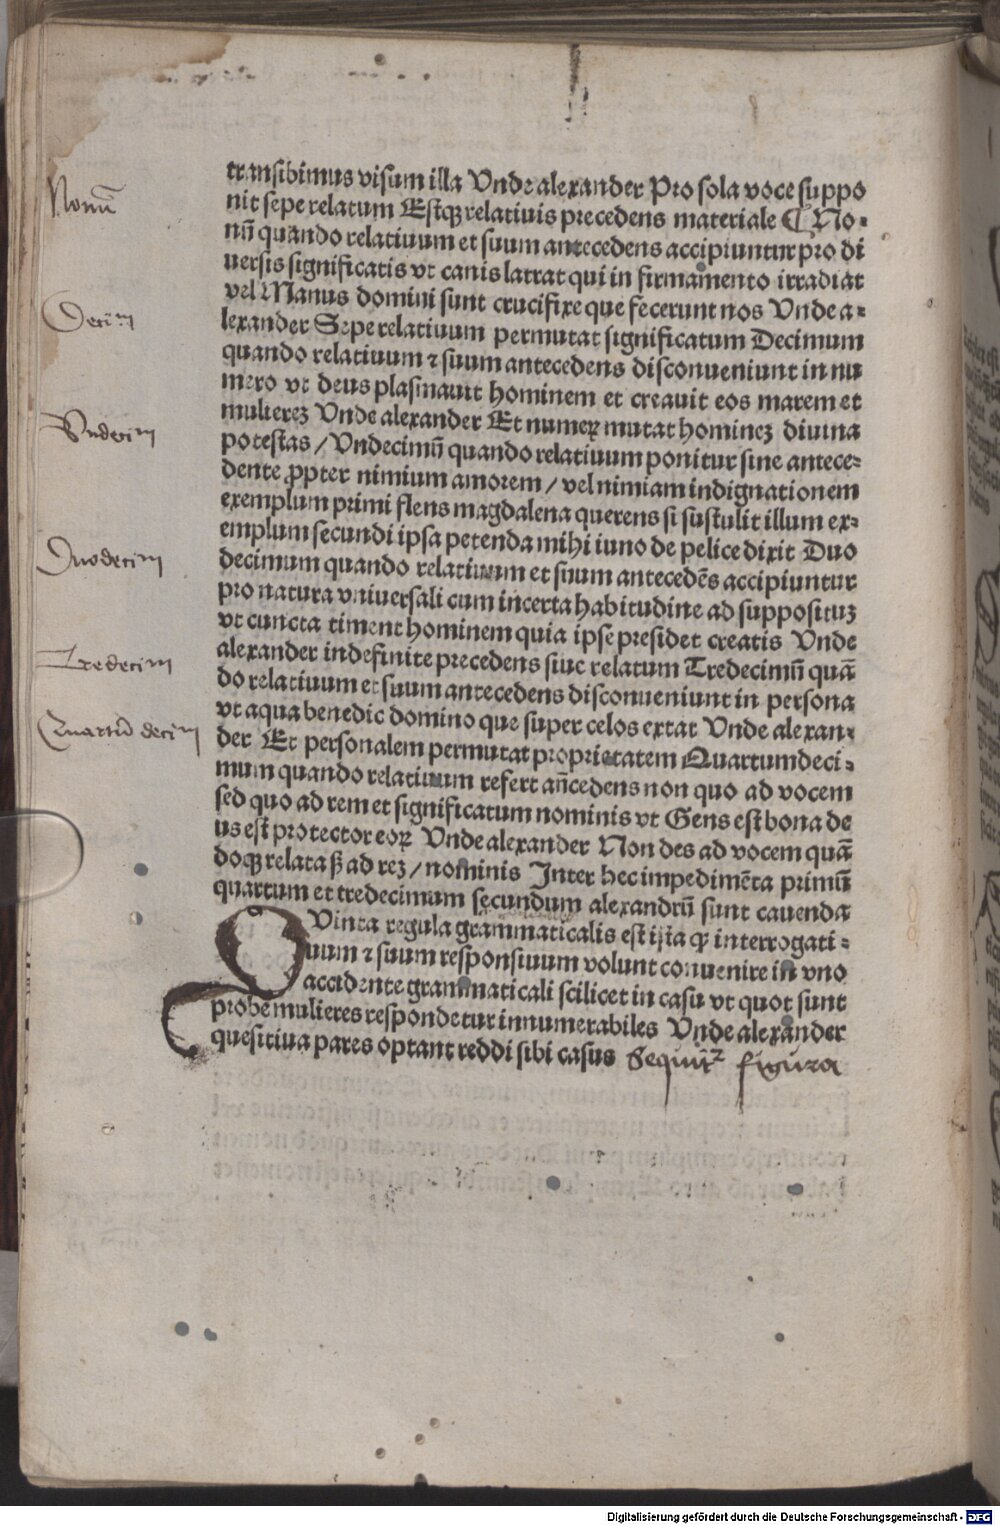 transibimus visum illa Vnde alexander Pro sola voce suppo
nit sepe relatum Estqꝫ relatiuis precedens materiale ¶ No-
Nonū
nū quando relatiuum et suum antecedens accipiuntur pro di
uersis significatis vt canis latrat qui in firmamento irradiat
vel Manus domini sunt crucifixe que fecerunt nos Vnde a-
lexander Sepe relatiuum permutat significatum Decimum
Decim
quando relatiuum ⁊ suum antecedens disconueniunt in nu
mero vt deus plasmauit hominem et creauit eos marem et
mulierez Vnde alexander Et numeꝝ mutat hominez diuina
Vndecim
potestas / Vndecimū quando relatiuum ponitur sine antece-
dente ꝓpter nimium amorem / vel nimiam indignationem
exemplum primi flens magdalena querens si sustulit illum ex-
emplum secundi ipsa petenda mihi iuno de pelice dixit Duo
Duodecim
decimum quando relatiuum et suum antecedēs accipiuntur
pro natura vniuersali cum incerta habitudine ad supposituz
vt cuncta timent hominem quia ipse presidet creatis Vnde
alexander indefinite precedens siue relatum Tredecimū quā
Tredecim
do relatiuum et suum antecedens disconueniunt in persona
vt aqua benedic domino que super celos extat Vnde alexan-
Quartū decim
der Et personalem permutat proprietatem Quartumdeci-
mum quando relatiuum refert añcedens non quo ad vocem
sed quo ad rem et significatum nominis vt Gens est bona de
us est protector eoꝝ Vnde alexander Non des ad vocem quā
doqꝫ relata ꝭ ad rez / nominis Inter hec impedimēta primū
quartum et tredecimum secundum alexandrū sunt cauenda
QVinta regula grammaticalis est ista ꝙ interrogati-
uum ⁊ suum responsiuum volunt conuenire in vno
accidente grammaticali scilicet in casu vt quot sunt
probe mulieres respondetur innumerabiles Vnde alexander
quesitiua pares optant reddi sibi casus Sequit᷑ figura
Digitalisierung gefördert durch die Deutsche Forschungsgemeinschaft - DFG